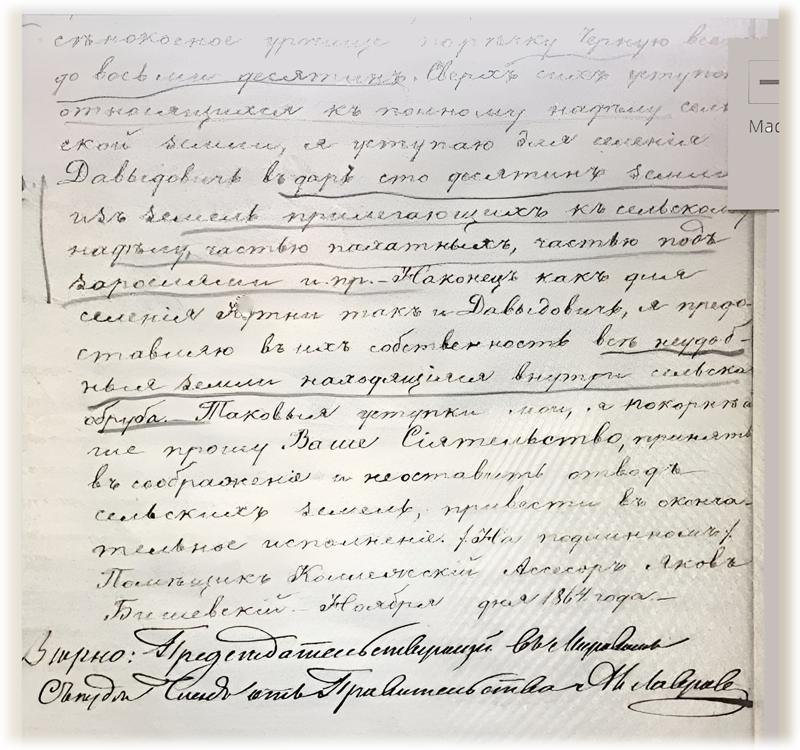 сѣнокосное урочище порѣчку Черную всего
до восьми десятинъ. Сверхъ сихъ уступокъ
относящихся къ полному надѣлу сель-
ской земли, я уступаю для селенія
Давыдовичъ въ даръ сто десятинъ земли
изъ земель прилегающихъ къ сельскому
надѣлу, частью пахатныхъ, частью подъ
зарослями и пр. – Наконецъ какъ для
селенія такъ и Давыдовичъ, я предо-
ставляю въ ихъ собственность всѣ неудоб-
ныя земли находящіяся внутри сельска
обруба. – Таковыя уступки мои, я покорнѣй
ше прошу Ваше Сіятельство, принять
въ соображеніе и неоставить отводъ
сельскихъ земель, привести въ оконча-
тельное исполненіе. /На подлинномъ/.
Помѣщикъ Коллежскій Ассесоръ Яковъ
Ноября дня 1864 года –
Вѣрно: Предсѣдательствующій въ Мировомъ
Съѣздѣ Членъ отъ Правительства
Мас